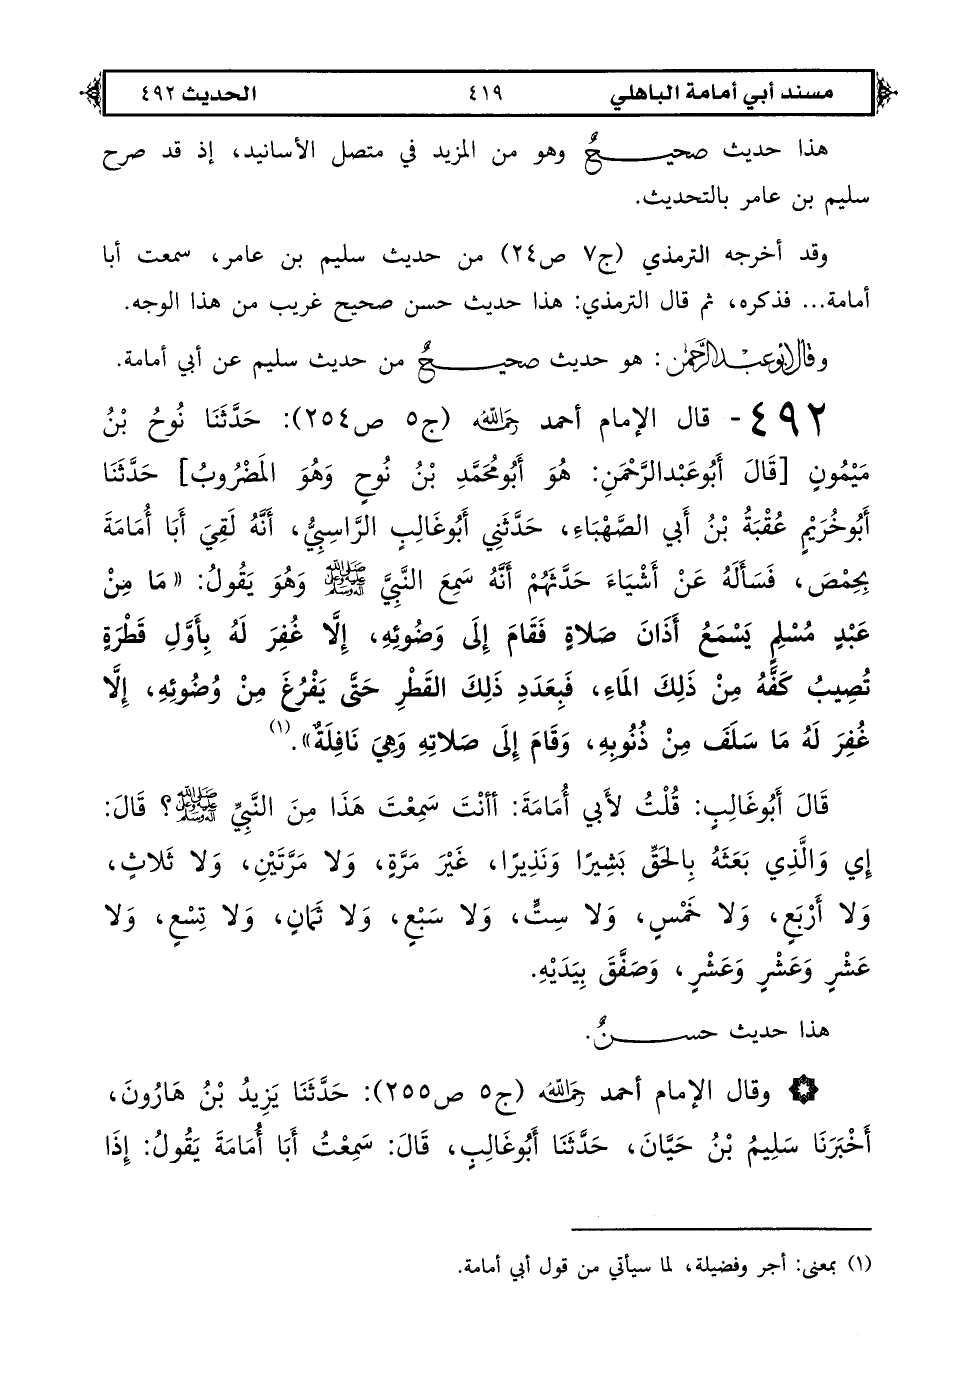 مسند أبي أمامة الباهلي ٤١٩ الحديث ٤٩٢
هذا حديث صحيحٌ وهو من المزيد في متصل الأسانيد، إذ قد صرح
سليم بن عامر بالتحديث.
وقد أخرجه الترمذي (ج٧ ص٢٤) من حديث سليم بن عامر، سمعت أبا
أمامة... فذكره، ثم قال الترمذي: هذا حديث حسن صحيح غريب من هذا الوجه.
وقال أبو عبد الرحمن: هو حديث صحيحٌ من حديث سليم عن أبي أمامة.
٤٩٢- قال الإمام أحمد رحمه الله (ج٥ ص٢٥٤): حَدَّثَنَا نُوحُ بْنُ
مَيْمُونٍ [قَالَ أَبُوعَبْدالرَّحْمَنِ: هُوَ أَبُومُحَمَّدِ بْنُ نُوحٍ وَهُوَ المَضْرُوبُ] حَدَّثَنَا
أَبُوخُرَيْمٍ عُقْبَةُ بْنُ أَبي الصَّهْبَاءِ، حَدَّثَنِي أَبُوغَالِبٍ الرَّاسِبِيُّ، أَنَّهُ لَقِيَ أَبَا أُمَامَةَ
بِحِمْصَ، فَسَأَلَهُ عَنْ أَشْيَاءَ حَدَّثَهُمْ أَنَّهُ سَمِعَ النَّبِيَّ ﷺ وَهُوَ يَقُولُ: «مَا مِنْ
عَبْدٍ مُسْلِمٍ يَسْمَعُ أَذَانَ صَلاةٍ فَقَامَ إِلَى وَضُوئِهِ، إِلَّا غُفِرَ لَهُ بِأَوَّلِ قَطْرَةٍ
تُصِيبُ كَفَّهُ مِنْ ذَلِكَ المَاءِ، فَبِعَدَدِ ذَلِكَ القَطْرِ حَتَّى يَفْرُغَ مِنْ وُضُوئِهِ، إِلَّا
غُفِرَ لَهُ مَا سَلَفَ مِنْ ذُنُوبِهِ، وَقَامَ إِلَى صَلاتِهِ وَهِيَ نَافِلَةٌ».(١)
قَالَ أَبُوغَالِبٍ: قُلْتُ لأَبي أُمَامَةَ: أأنْتَ سَمِعْتَ هَذَا مِنَ النَّبِيِّ ﷺ؟ قَالَ:
إِي وَالَّذِي بَعَثَهُ بِالحَقِّ بَشِيرًا وَنَذِيرًا، غَيْرَ مَرَّةٍ، وَلا مَرَّتَيْنِ، وَلا ثَلاثٍ،
وَلا أَرْبَعٍ، وَلا خَمْسٍ، وَلا سِتٍّ، وَلا سَبْعٍ، وَلا ثَمَانٍ، وَلا تِسْعٍ، وَلا
عَشْرٍ وَعَشْرٍ وَعَشْرٍ، وَصَفَّقَ بِيَدَيْهِ.
هذا حديث حسنٌ.
وقال الإمام أحمد رحمه الله (ج٥ ص٢٥٥): حَدَّثَنَا يَزِيدُ بْنُ هَارُونَ،
أَخْبَرَنَا سَلِيمُ بْنُ حَيَّانَ، حَدَّثَنَا أَبُوغَالِبٍ، قَالَ: سَمِعْتُ أَبَا أُمَامَةَ يَقُولُ: إِذَا
(١) بمعنى: أجر وفضيلة، لما سيأتي من قول أبي أمامة.